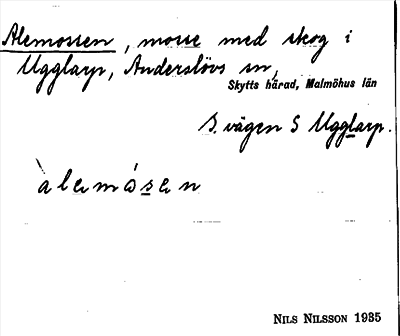 Alemossen, mosse med skog i
Ugglarp, Anderslövs sn,
Skytts härad, Malmöhus län
S. vägen S Ugglarp.
`alemósen
NILS NILSSON 1935